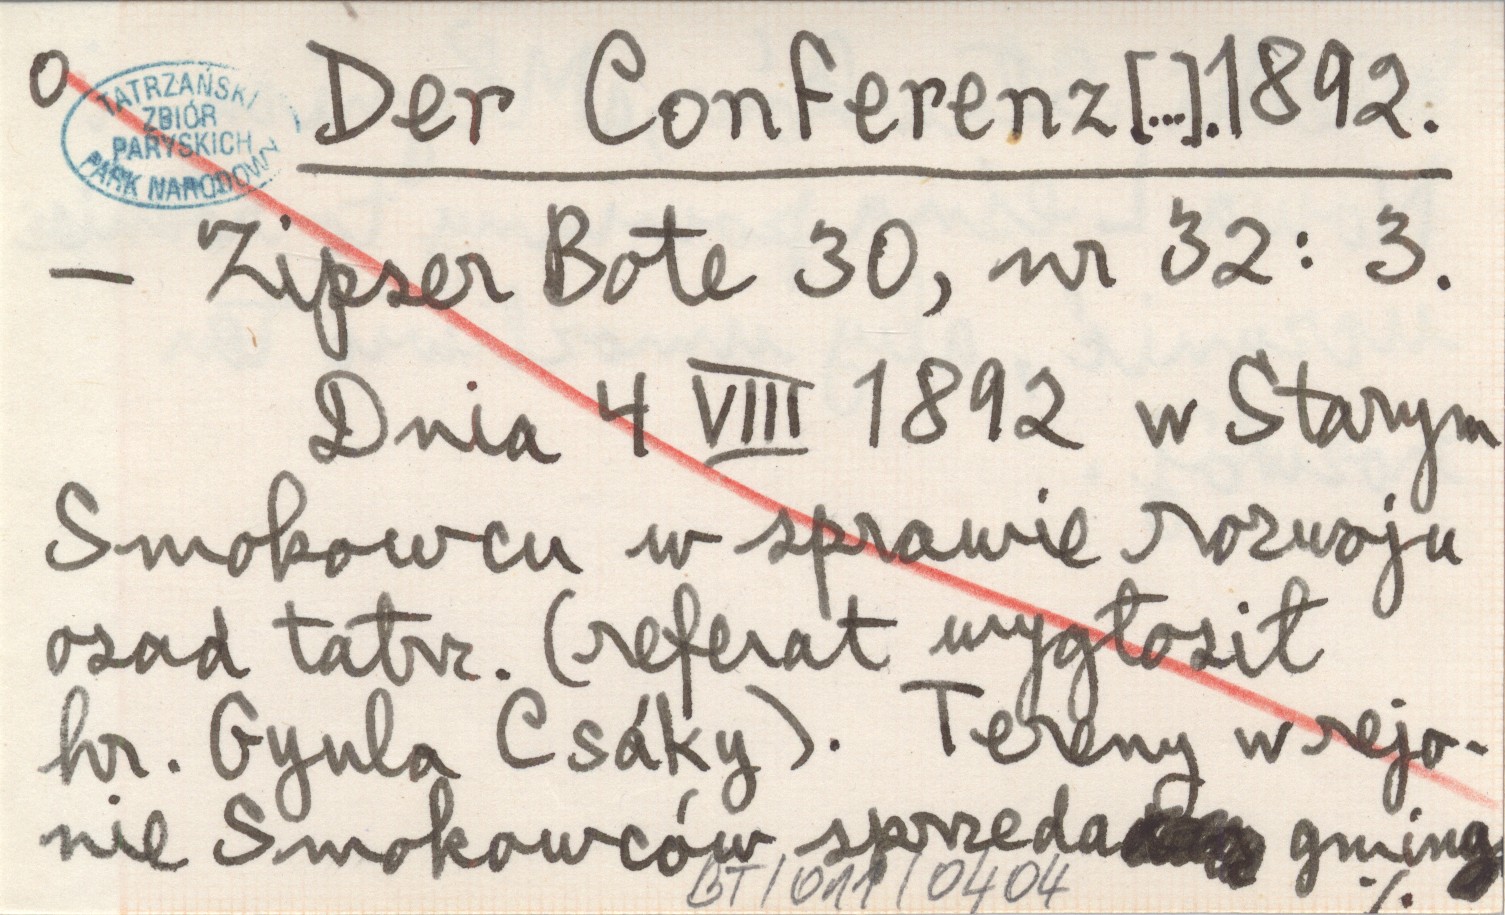 O
TATRZAŃSKI
ZBIÓR
PARYSKICH
PARK NARODOWY
Der Conferenz[...].1892.
— Zipser Bote 30, nr 32: 3.
Dnia 4 VIII 1892 w Starym
Smokowcu w sprawie rozwoju
osad tatrz. (referat wygłosił
hr. Gyula Csáky). Tereny w rejo-
nie Smokowców sprzeda gming
BT/011/0404
./.